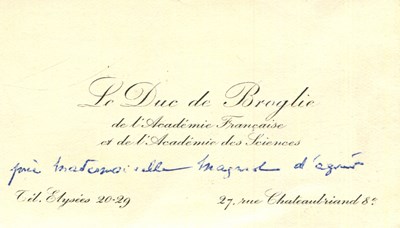 Le Duc de Broglie
de l'Académie Française
et de l'Académie des Sciences
prie Mademoiselle d'agréer
Tél. Elysées 20-29 27, rue Chateaubriand 8e